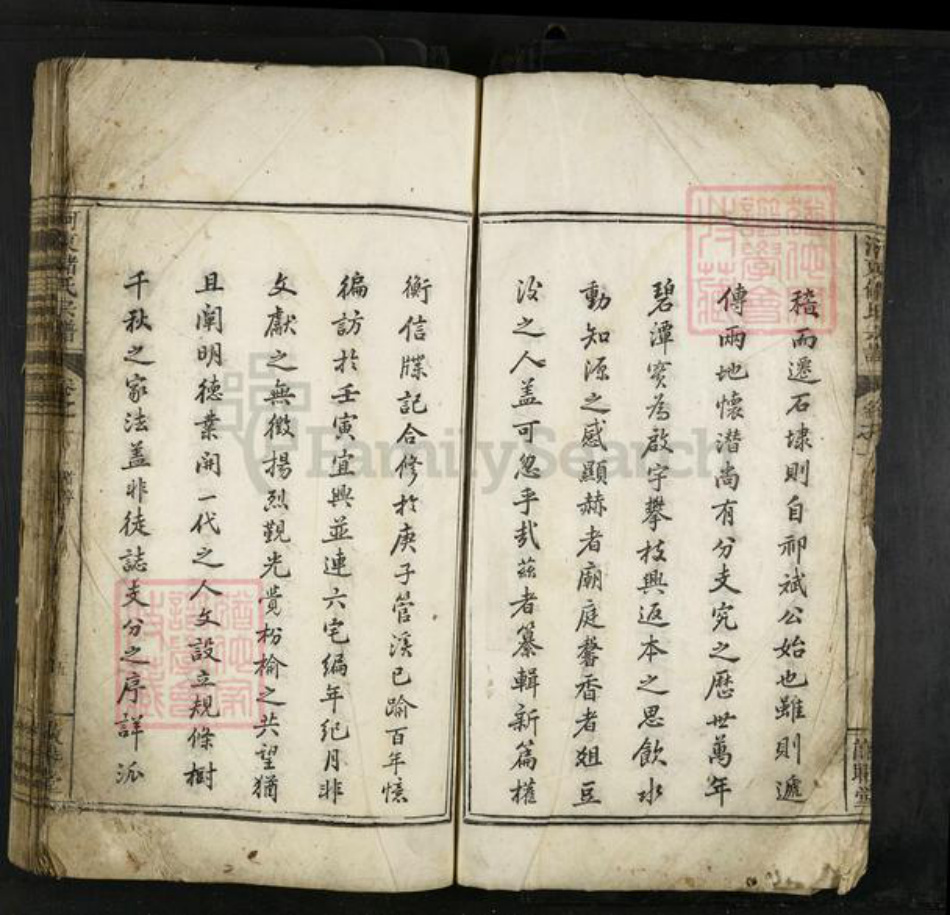 稽而遷石埭則自祁斌公始也雖則遞
傳兩地懷潛尚有分支究之歷世萬年
碧潭實為啟宇攀枝興返本之思飲水
動知源之感顯赫者廟庭馨香者俎豆
後之人盖可忽乎哉茲者纂輯新篇權
衡信牒記合修於庚子管溪已踰百年憶
徧訪於壬寅宜興並連六宅編年紀月非
文獻之無徵揚烈覲光賞枌榆之共望猶
且闡明德業開一代之人文設立規條樹
千秋之家法盖非徒誌支分之序詳派
氏宗譜
FamilySearch